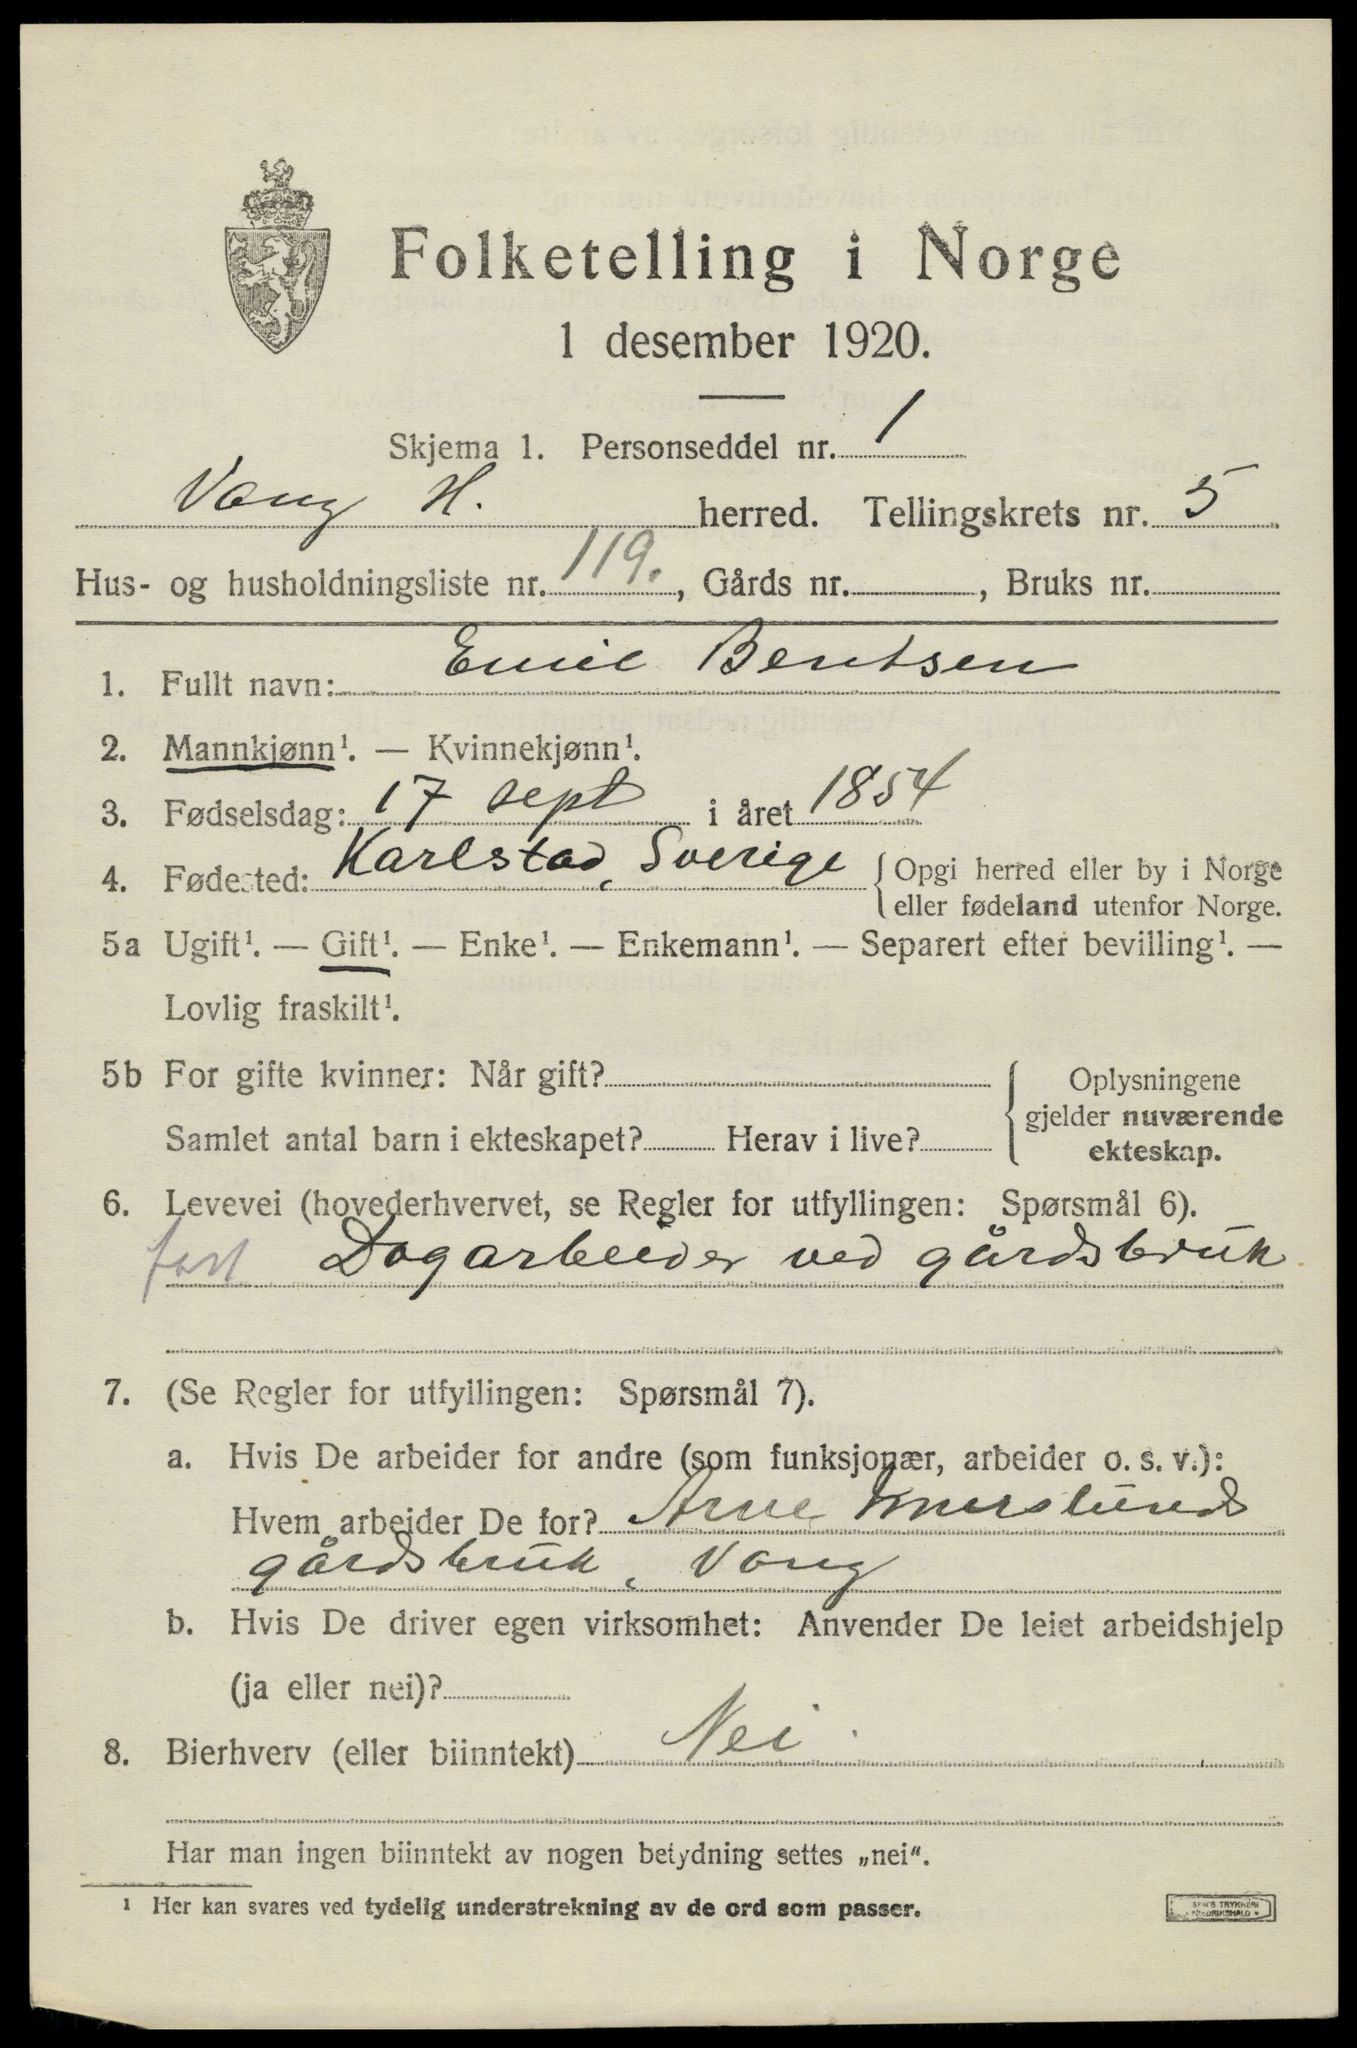 Folketelling i Norge
1 desember 1920.
Skjema 1. Personseddel nr. 1
Vang H. herred. Tellingskrets nr. 5
Hus- og husholdningsliste nr. 119., Gårds nr. , Bruks nr.
1. Fullt navn: Emil Bentsen
2. Mannkjønn¹. — Kvinnekjønn¹.
3. Fødselsdag: 17 sept i året 1854
4. Fødested: Karlstad, Sverige { Opgi herred eller by i Norge
eller fødeland utenfor Norge.
5a Ugift¹. — Gift¹. — Enke¹. — Enkemann¹. — Separert efter bevilling¹. —
Lovlig fraskilt¹.
5b For gifte kvinner: Når gift? { Oplysningene
gjelder nuværende
Samlet antal barn i ekteskapet? Herav i live? ekteskap.
6. Levevei (hovederhvervet, se Regler for utfyllingen: Spørsmål 6).
fast Dagarbeider ved gårdsbruk
7. (Se Regler for utfyllingen: Spørsmål 7).
a. Hvis De arbeider for andre (som funksjonær, arbeider o. s. v.):
Hvem arbeider De for? Arne Imerslunds
gårdsbruk, Vang
b. Hvis De driver egen virksomhet: Anvender De leiet arbeidshjelp
(ja eller nei)?
8. Bierhverv (eller biinntekt) Nei
Har man ingen biinntekt av nogen betydning settes „nei".
¹ Her kan svares ved tydelig understrekning av de ord som passer.
SEN'S TRYKKERI
FREDRIKSHALD